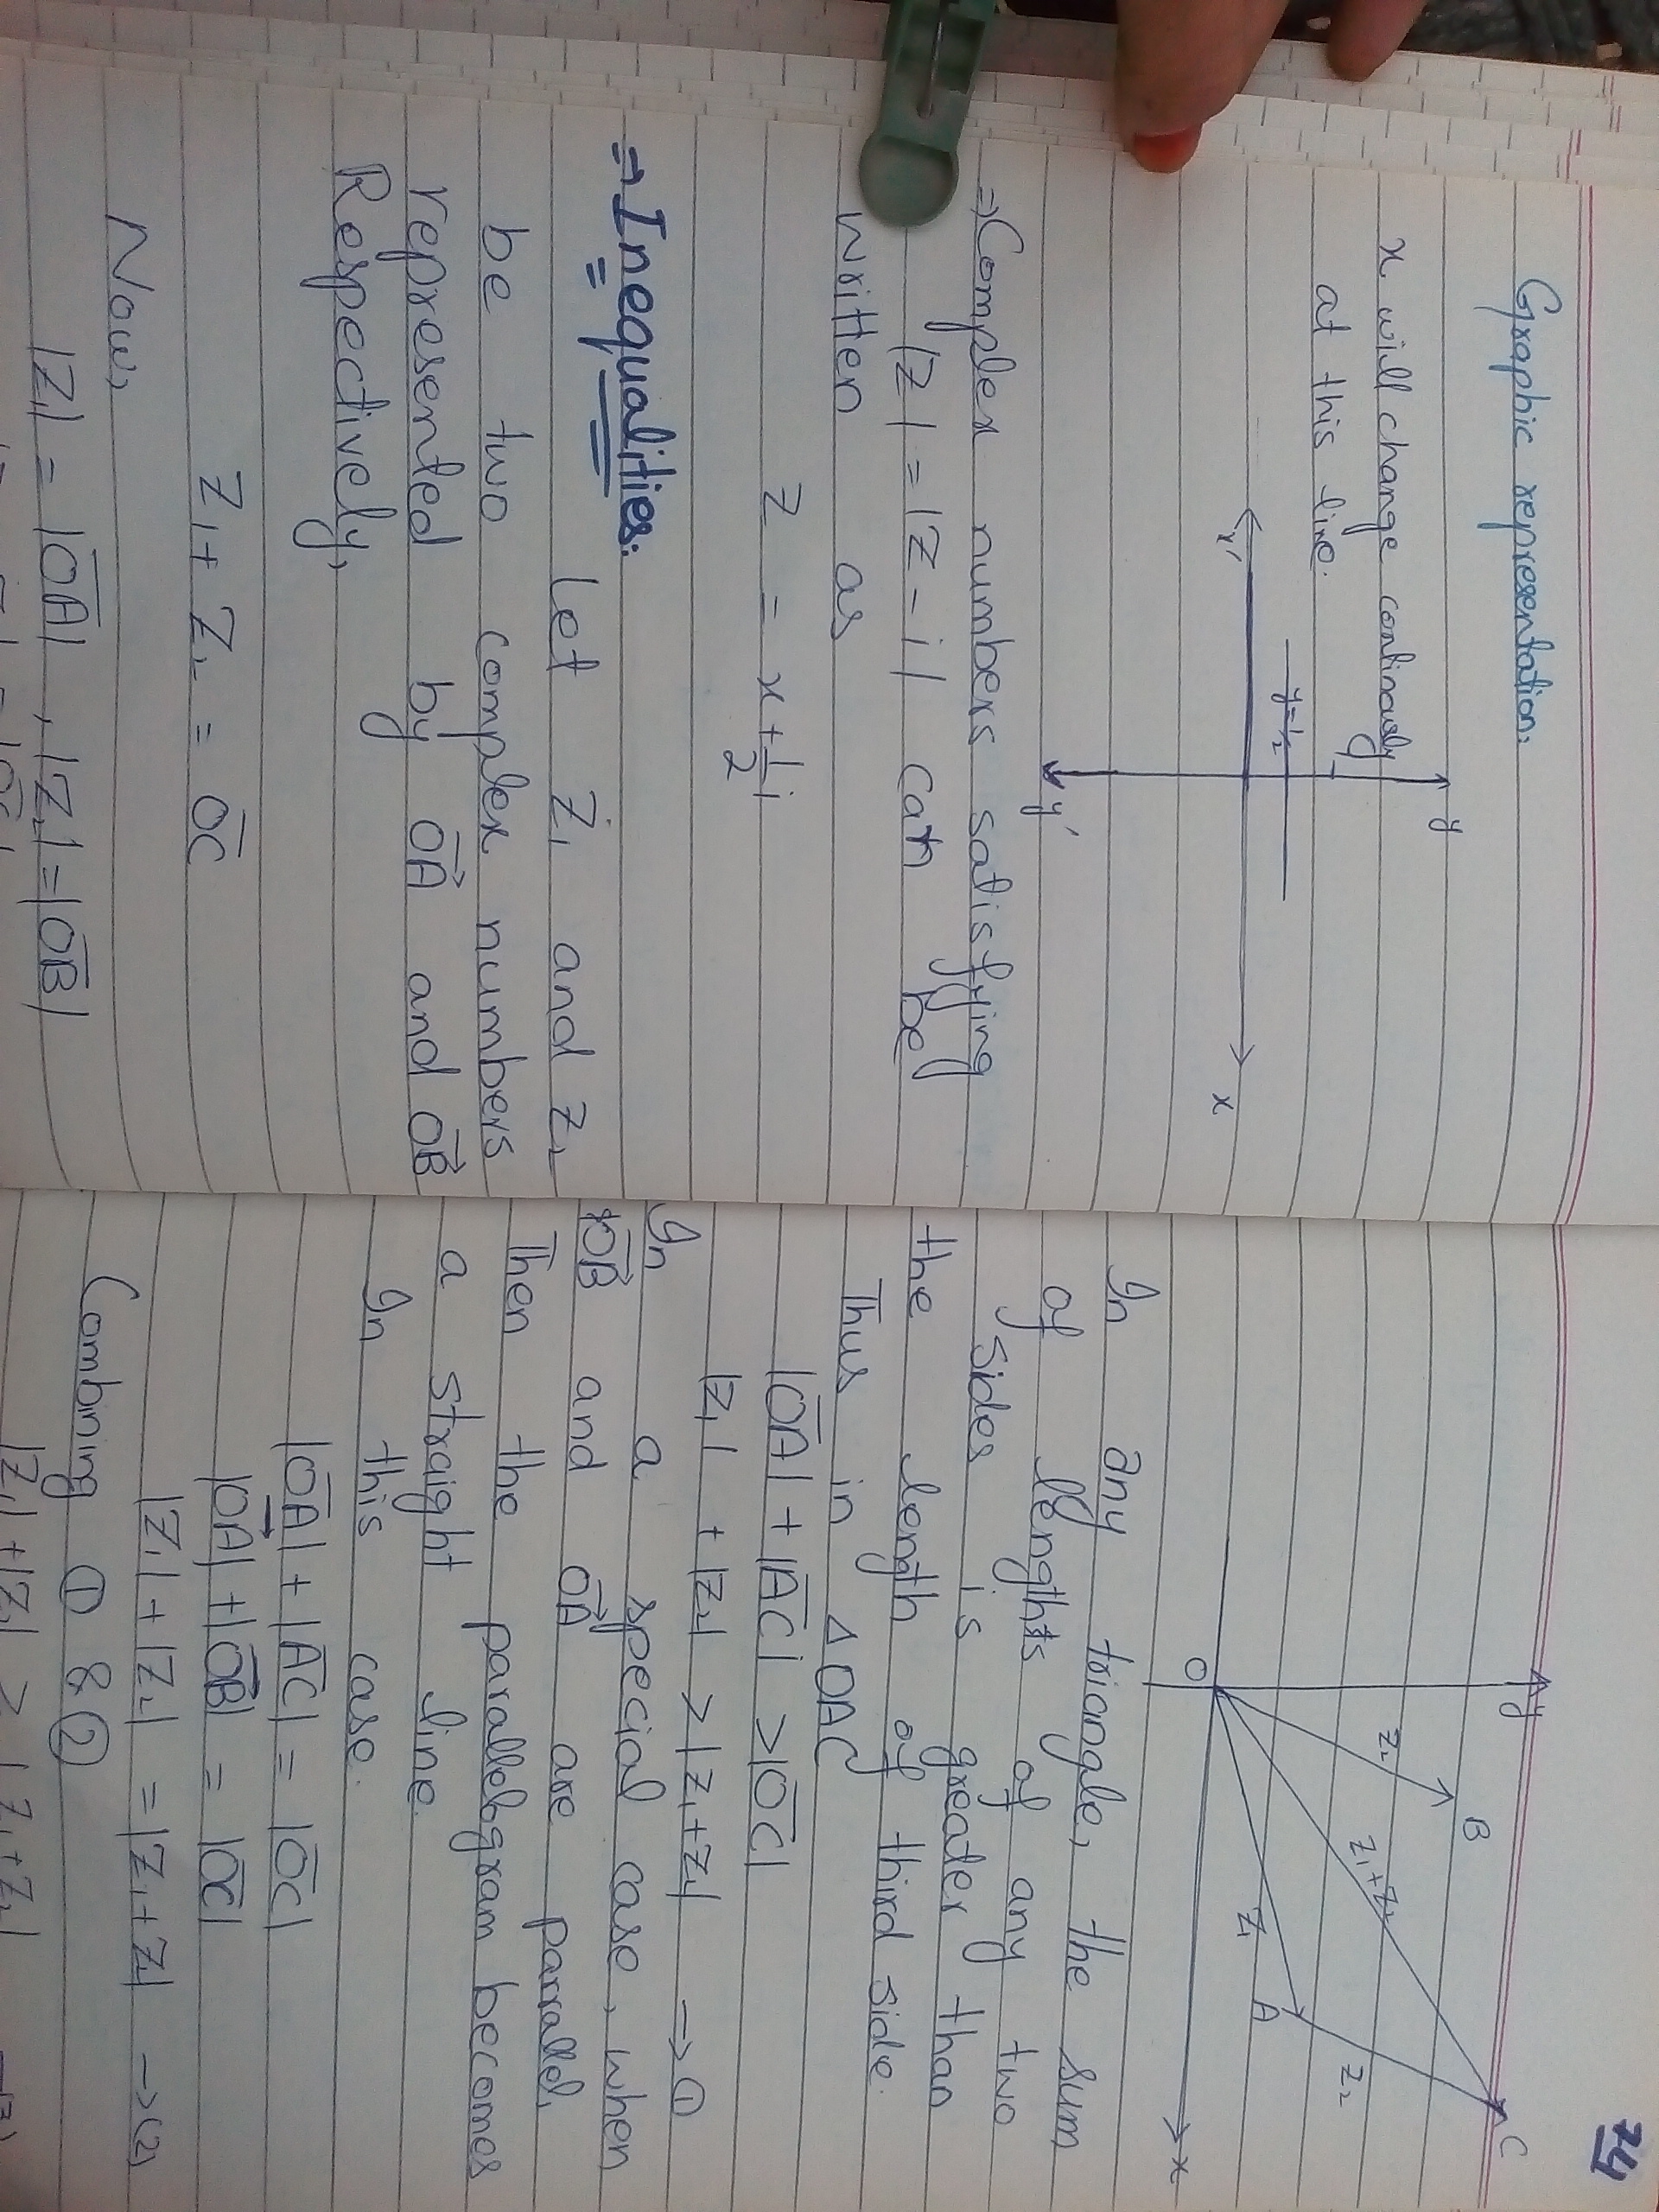 Graphic representation:
x will change continously
at this line.
y
y=1/2
x'
x
y'
⇒ Complex numbers satisfying
|z| = |z - i| can be
written as
z = x + 1/2 i
⇒ Inequalities:
Let z₁ and z₂
be two complex numbers
represented by OA and OB
Respectively,
z₁ + z₂ = OC
Now,
|z₁| = |OA| , |z₂| = |OB|
74
y
B
C
z₂
z₁+z₂
z₁
A
z₂
O
x
In any triangle, the sum
of lengths of any two
sides is greater than
the length of third side.
Thus in △ OAC
|OA| + |AC| > |OC|
|z₁| + |z₂| > |z₁+z₂| → ①
In a special case, when
OB and OA are parralel,
Then the parallelogram becomes
a straight line.
In this case.
|OA| + |AC| = |OC|
|OA| + |OB| = |OC|
|z₁| + |z₂| = |z₁ + z₂| → (2)
Combining ① & ②
|z₁| + |z₂| ≥ |z₁+z₂|